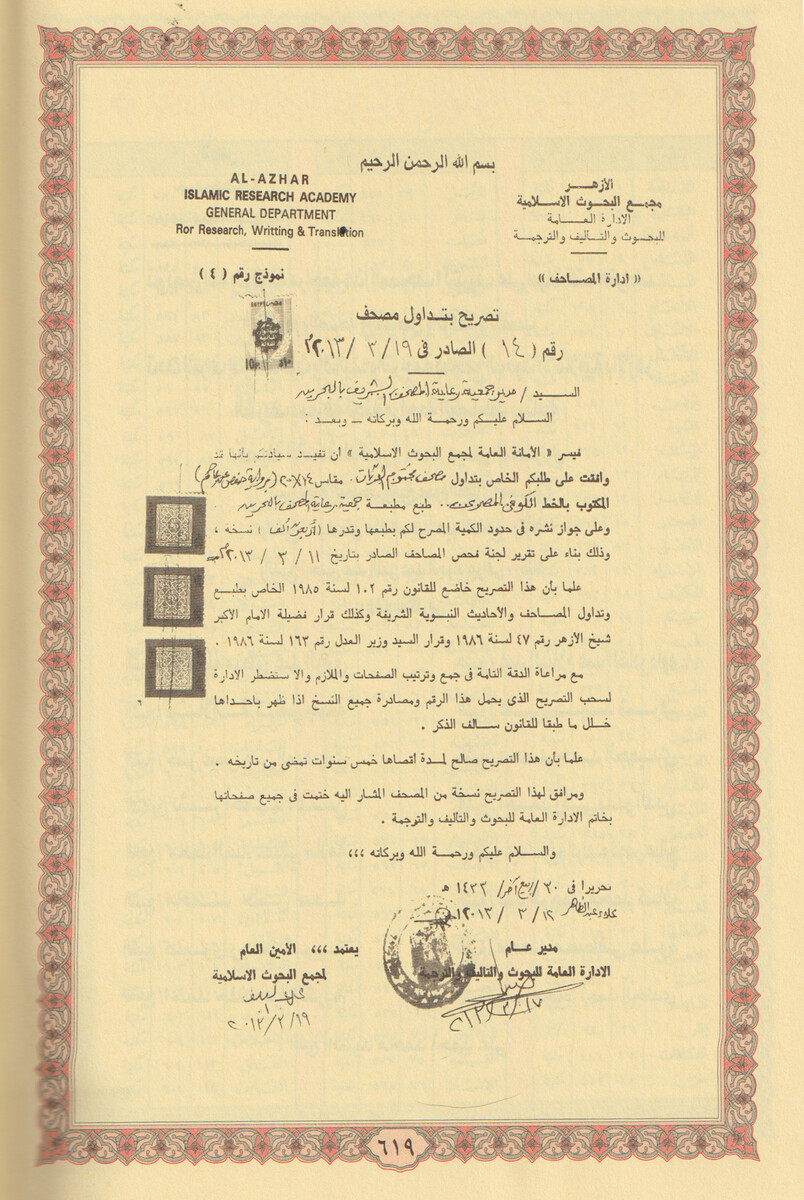 بسم الله الرحمن الرحيم
AL-AZHAR
ISLAMIC RESEARCH ACADEMY
GENERAL DEPARTMENT
Ror Research, Writting & Translation
الأزهـــر
مجمع البحوث الاسلامية
الادارة العـــامة
للبحوث والتأليف والترجمة
نموذج رقم ( ٤ )
« ادارة المصاحف »
تصريح بتداول مصحف
رقم ( ١٤ ) الصادر فى ١٩ / ٣ / ٢٠١٣م
الســـيد / مدير جمعية رعاية المصحف الشريف بالبحرين
السـلام عليـكم ورحمـة الله وبركاته ـ وبعـد :
فيسر « الأمانة العامة لمجمع البحوث الاسلامية » أن تفيـد سيادتكم بأنها قد
وافقت على طلبكم الخاص بتداول مصحف مقاس ١٤×٢٠ (برواية حفص عن عاصم)
المكتوب بالخط الكوفى طبع مطبعـة جمعية رعاية المصحف بالبحرين
وعلى جواز نشره فى حدود الكمية المصرح لكم بطبعها وقدرها ( ألف ) نسخه ،
وذلك بناء على تقرير لجنة فحص المصاحف الصادر بتاريخ ١١ / ٣ / ٢٠١٣م
علما بأن هذا التصريح خاضع للقانون رقم ١٠٢ لسنة ١٩٨٥ الخاص بطبـع
وتداول المصـاحف والأحاديث النبـوية الشريفة وكذلك قرار فضيلة الامام الأكبر
شيخ الأزهر رقم ٤٧ لسنة ١٩٨٦ وقرار السيد وزير العدل رقم ١٦٣ لسنة ١٩٨٦ .
مع مراعاة الدقة التامة فى جمع وترتيب الصفحات والملازم والا ستضطر الادارة
لسحب التصريح الذى يحمل هذا الرقم ومصادرة جميع النسخ اذا ظهر باحداها
خلـل ما طبقا للقانون سـالف الذكر .
علما بأن هذا التصريح صالح لمـدة أقصاها خمس سنوات تمضى من تاريخه .
ومرافق لهذا التصريح نسخة من المصحف المشار اليه ختمت فى جميع صفحاتها
بخاتم الادارة العامة للبحوث والتأليف والترجمة .
والســلام عليكم ورحمـة الله وبركاته ،،،
تحريرا فى ٣٠ / ربيع آخر / ١٤٣٢ هـ
١٩ / ٣ / ٢٠١٣م
مدير عـــام
الادارة العامة للبحوث والتأليف والترجمة
يعتمد ،،، الأمين العام
لمجمع البحوث الاسلامية
٢٠١٣/٣/١٧
٢٠١٣/٣/١٩
٦١٩